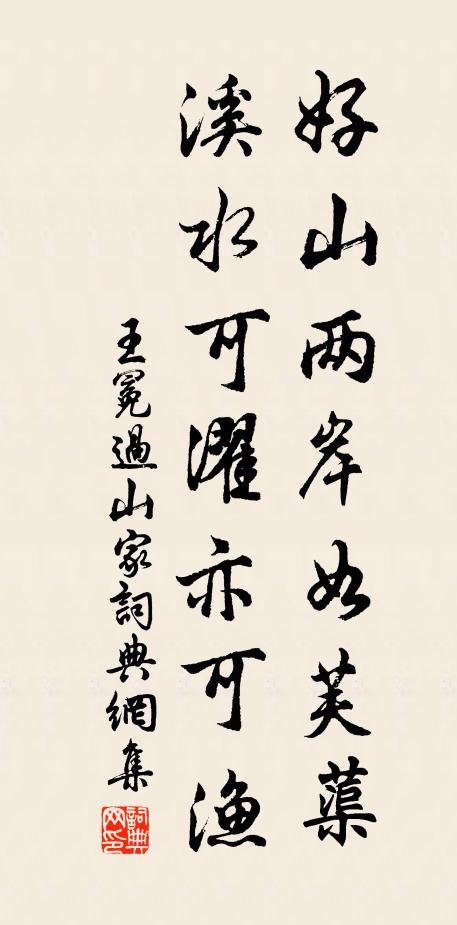 好山两岸如芙蕖
溪水可濯亦可漁
王冕過山家詞典網集
詞典網印